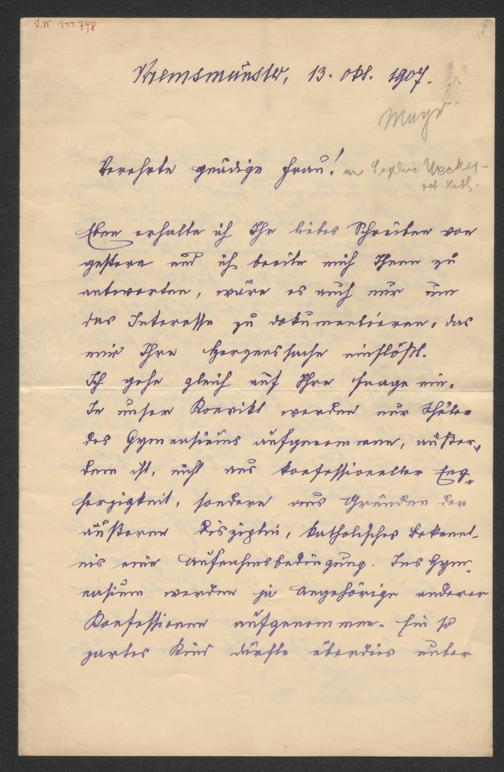 I.N 191.798
Kremsmünster, 13. Okt. 1907.
Mayr
Verehrte gnädige Frau!
an Sophie
Eben erhalte ich Ihr liebes Schreiben von
gestern und ich beeile mich Ihnen zu
antworten, wäre es auch nur um
das Interesse zu dokumentieren, das
mir Ihre Herzenssache einflößt.
Ich gehe gleich auf Ihre Frage ein.
In unser Konvikt werden nur Schüler
des Gymnasiums aufgenommen, außer-
dem ist, nicht aus konfessioneller Eng-
herzigkeit, sondern aus Gründen der
äußeren Disziplin, katholisches Bekennt-
nis eine Aufnahmsbedingung. Ins Gym-
nasium werden ja Angehörige anderer
Konfessionen aufgenommen. Ein so
zartes Kind dürfte überdies unter